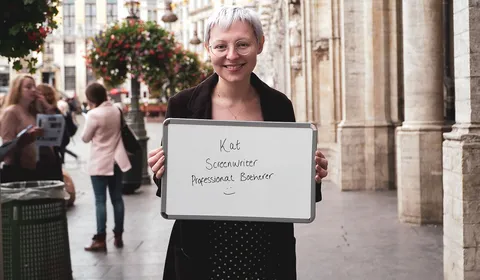 Kat
Screenwriter
Professional Botherer
:)